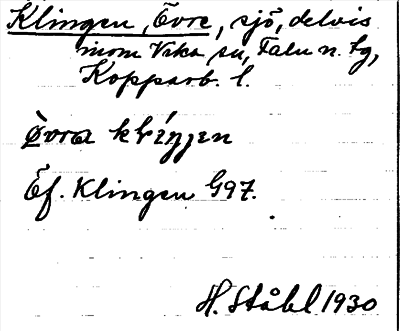 Klingen, Övre, sjö, delvis
inom Vika sn, Falu n. tg,
Kopparb. l.
Öf. Klingen G97.
H. Ståhl 1930